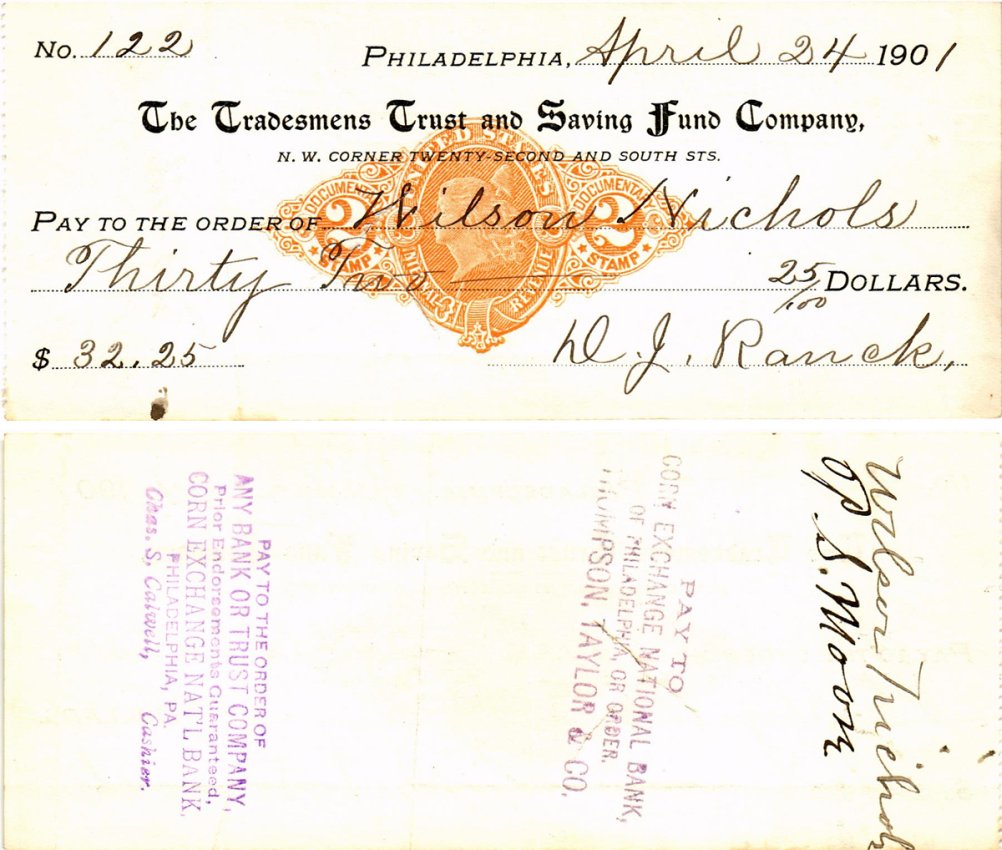 No. 122
PHILADELPHIA, April 24 1901
The Tradesmens Trust and Saving Fund Company,
N. W. CORNER TWENTY-SECOND AND SOUTH STS.
UNITED STATES
DOCUMENTARY 2 STAMP
DOCUMENTARY 2 STAMP
INTERNAL REVENUE
PAY TO THE ORDER OF Wilson Nichols
Thirty Two 25/100 DOLLARS.
$ 32.25
D. J. Ranck,
Wilson Nichols
S. Moon
PAY TO
CORN EXCHANGE NATIONAL BANK,
OF PHILADELPHIA, OR ORDER.
THOMPSON, TAYLOR & CO.
PAY TO THE ORDER OF
ANY BANK OR TRUST COMPANY,
Prior Endorsements Guaranteed,
CORN EXCHANGE NAT'L BANK,
PHILADELPHIA, PA.
Chas. S. Calwell, Cashier.